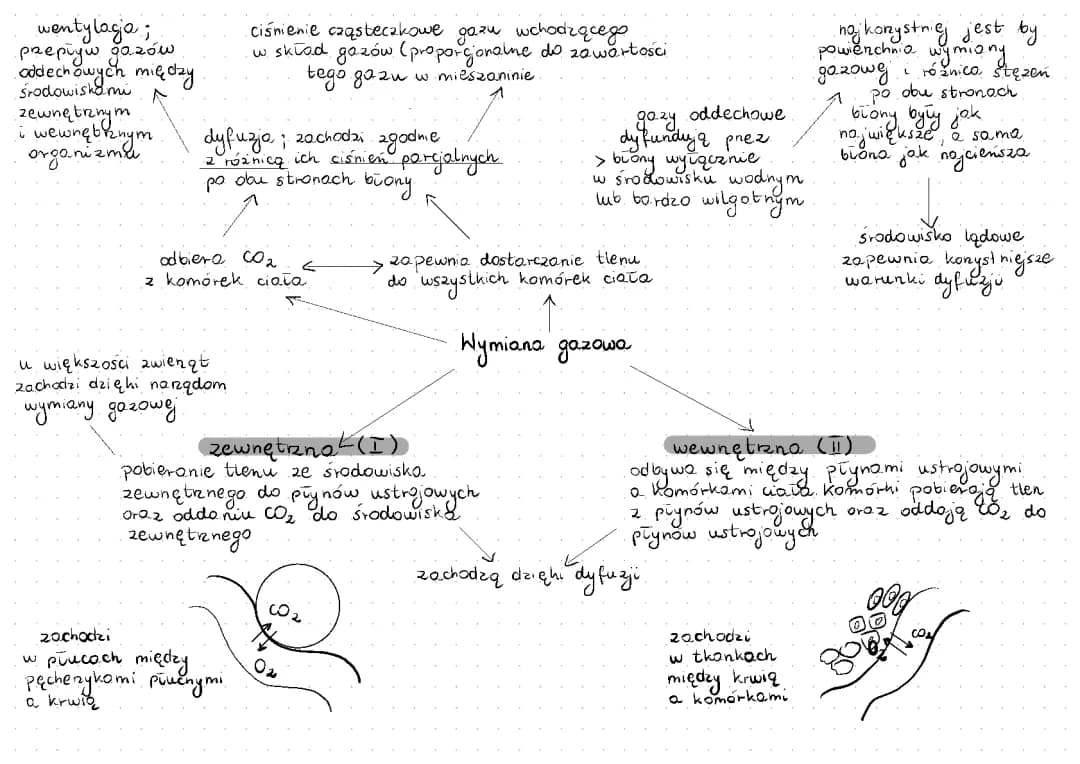 wentylacja ;
przepływ gazów
oddechowych między
środowiskami
zewnętrznym
i wewnętrznym
organizmu
ciśnienie cząsteczkowe gazu wchodzącego
w skład gazów (proporcjonalne do zawartości
tego gazu w mieszaninie
dyfuzja ; zachodzi zgodnie
z różnicą ich ciśnień parcjalnych
po obu stronach błony
gazy oddechowe
dyfundują przez
> błony wyłącznie
w środowisku wodnym
lub bardzo wilgotnym
najkorzystniej jest by
powierzchnia wymiany
gazowej i różnica stężeń
po obu stronach
błony były jak
największe, a sama
błona jak najcieńsza
środowisko lądowe
zapewnia korzystniejsze
warunki dyfuzji
odbiera CO₂
z komórek ciała
zapewnia dostarczanie tlenu
do wszystkich komórek ciała
Wymiana gazowa
u większości zwierząt
zachodzi dzięki narządom
wymiany gazowej
zewnętrzna (I)
pobieranie tlenu ze środowiska
zewnętrznego do płynów ustrojowych
oraz oddaniu CO₂ do środowiska
zewnętrznego
wewnętrzna (II)
odbywa się między płynami ustrojowymi
a komórkami ciała. Komórki pobierają tlen
z płynów ustrojowych oraz oddają CO₂ do
płynów ustrojowych
zachodzą dzięki dyfuzji
zachodzi
w płucach między
pęcherzykami płucnymi
a krwią
CO₂
O₂
zachodzi
w tkankach
między krwią
a komórkami
O₂
CO₂